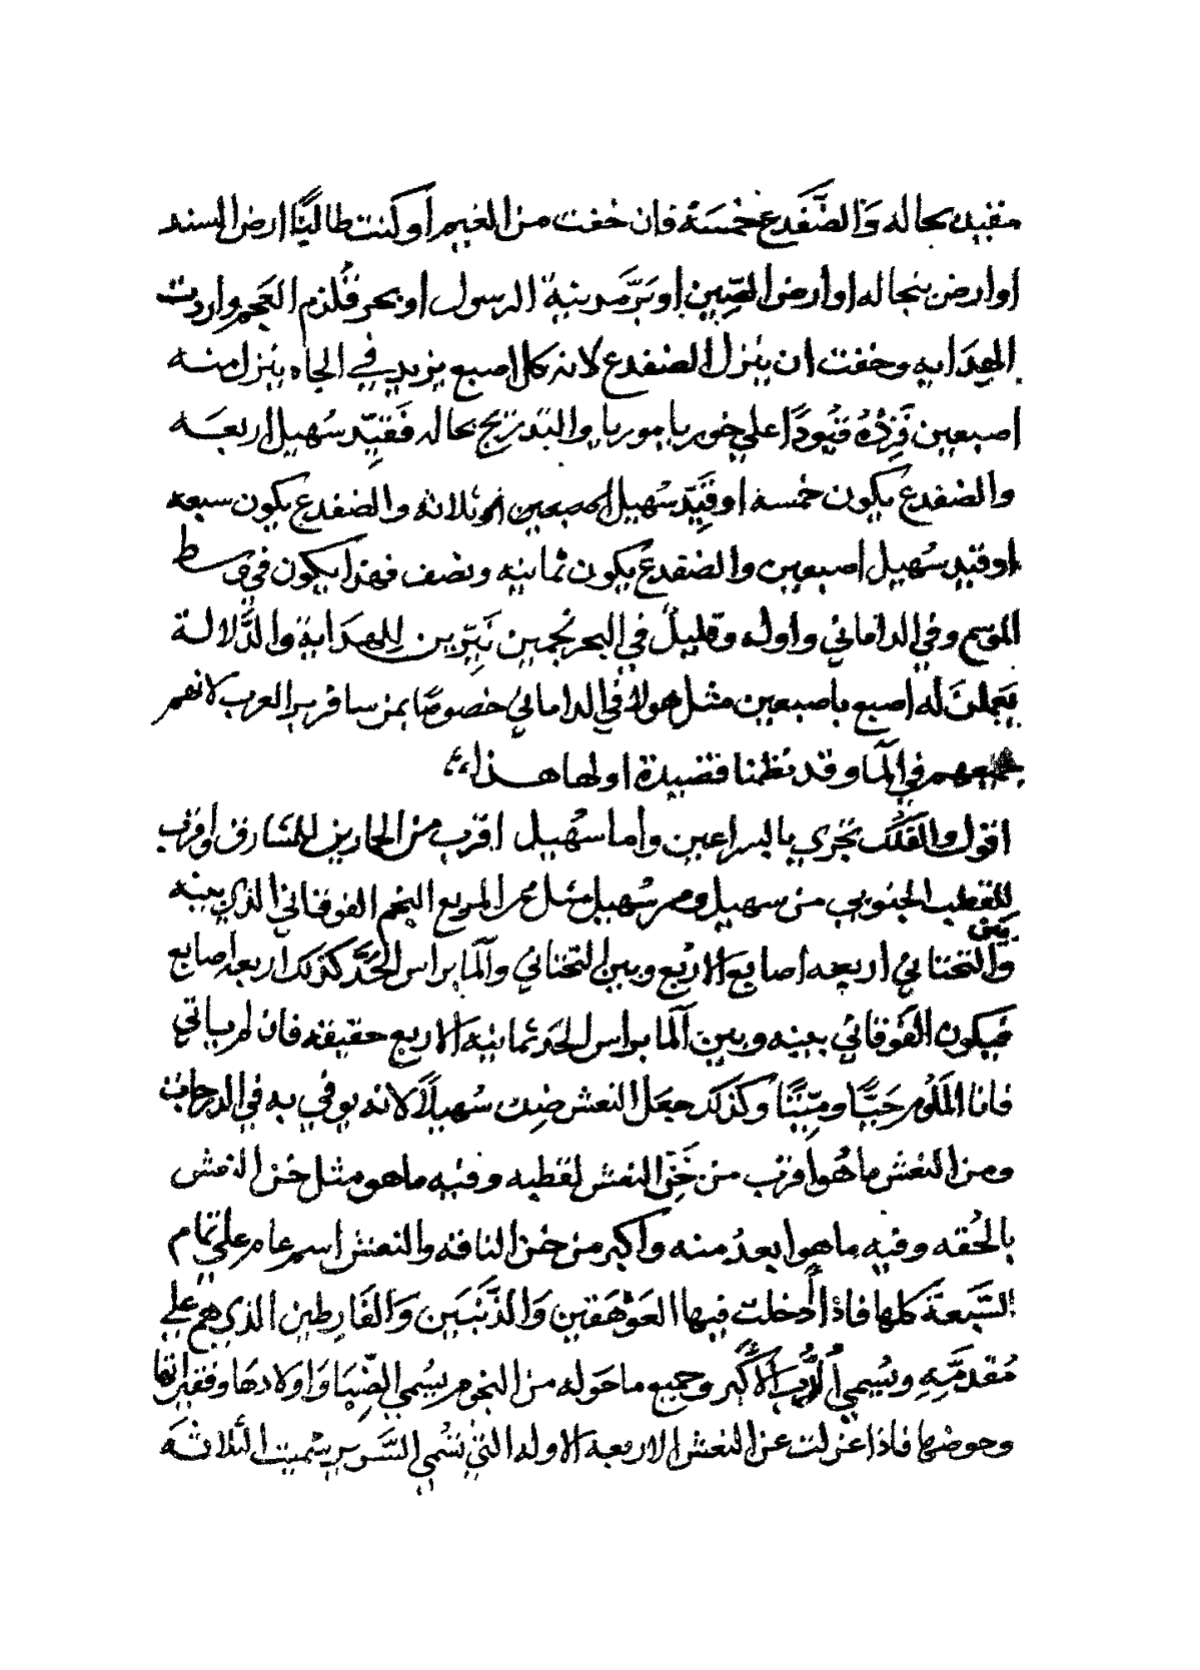 مقيد بحاله وَالضِّفدع خمسَة فان خفت من الغيم او كنت طالبًا ارض السند
او ارض بنجاله او ارض الصِّين او برّ مدينة الرسول او بحر قُلزم العجم واردت
الهدَايه وخفت ان ينزل الضفدع لانه كل اصبع يزيد في الجاه ينزل منه
اصبعين فَزِدْهُ قيُودًا علي خوريا موريا والتدريج بحاله فَقيِّد سُهيل اربعَه
والضفدع يكون خمسه او قَيِّد سُهيل اصبعين او ثلاثه والضفدع يكون سبعه
او قيد سُهيل اصبعين والضفدع يكون ثمانيه ونصف فهذا يكون في وسط
الموسم وفي الدامانى واوله وقليلٌ في البحر نجمين نيِّرين للهدَاية والدَّلالة
يَعملنَ له اصبع باصبعين مثل هولاء في الدامانى خصوصًا لمن سافر بر العرب لانهم
جميعهم في المآ وقد نظمنا قصيدة اولها هذا
اقول والفَلَك تجْري بالبراعين واما سُهيل اقرب من الحارين للمشارق واقرب
للقطب الجنوبي من سهيل ومر سُهيل مثل مر المربع النجم الفوقاني الذي بينه
وبين
والتحتاني اربعه اصابع الا ربْع وبين التحتاني والمآ براس الحَدّ كذلك اربعه اصابع
فيكون الفَوقاني بينه وبين المآ براس الحَد ثمانيَه الا ربع حقيقه فان لم ياتي
فانا الملُوم حَيًّا وميِّتًا وكذلك جعَل النعش ضِدّ سُهيلاً لانه يوفي به في الدرجات
ومن النعش ما هُو اقرب من خَنّ النعش لقطبه وفيه ما هو مثل خن النعش
بالحُقه وفيه ما هو ابعدُ منه واكبر من خن الناقه والنعش اسم عام علي تمام
السَّبعةَ كلها فاذا أدخلت فيها العَوْهَقين وَالذَّنبَين وَالفَارطين الذي هم علي
مُقدمَّتِهِ وتُسمي الدُّب الاكْبَر وجميع ما حَوله من النجوم يسُمي الظِّبَا وَاولادهَا وقفزاتها
وحوضها فاذا عزلت عن النعش الاربعة الاوله التي تسُمي السَّرير سُميت الثلاثَه